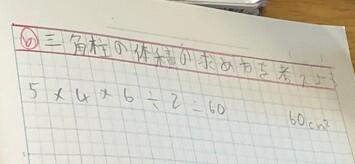 め 三角柱の体積の求め方を考えよう
5×4×6÷2=60 60cm³